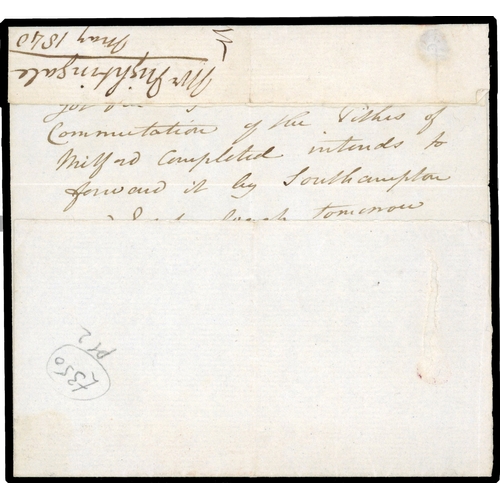 Mr Nightingale
May 1840
Commutation of the Tithes of
Milford Completed intends to
forward it by Southampton
coach tomorrow
£350
pl2